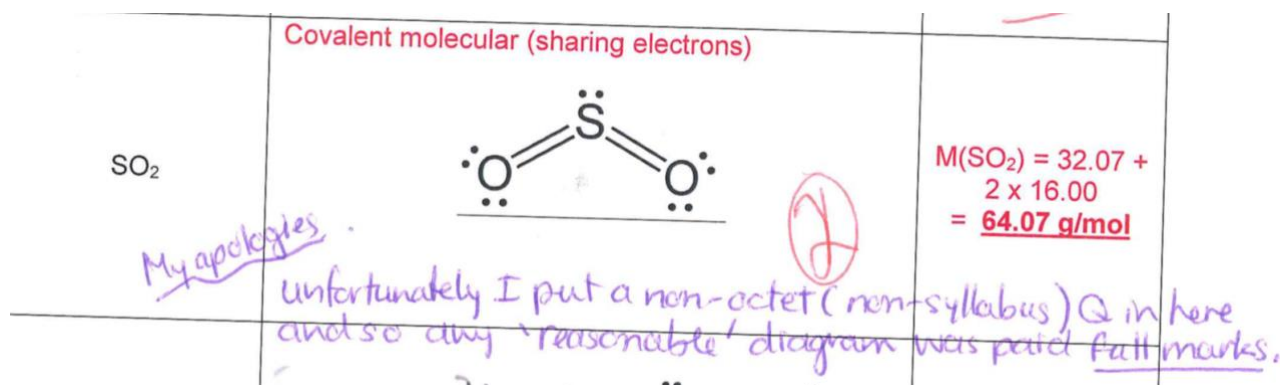 Covalent molecular (sharing electrons)
S
O O
SO₂
M(SO₂) = 32.07 +
2 x 16.00
= 64.07 g/mol
My apologies.
unfortunately I put a non-octet (non-syllabus) Q in here
and so any 'reasonable' diagram was paid full marks.